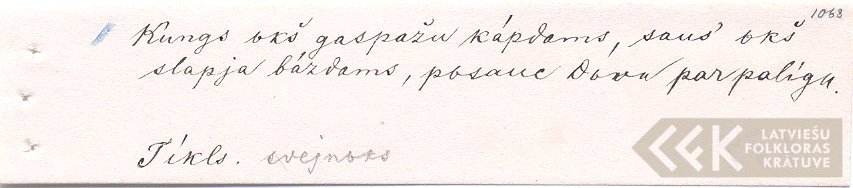 1068
Kungs okš gaspažu kápdams, sauš okš
slapja bázdams, posauc Dovu par palígu.
Tíkls. svejnoks
LFK LATVIEŠU
FOLKLORAS
KRĀTUVE